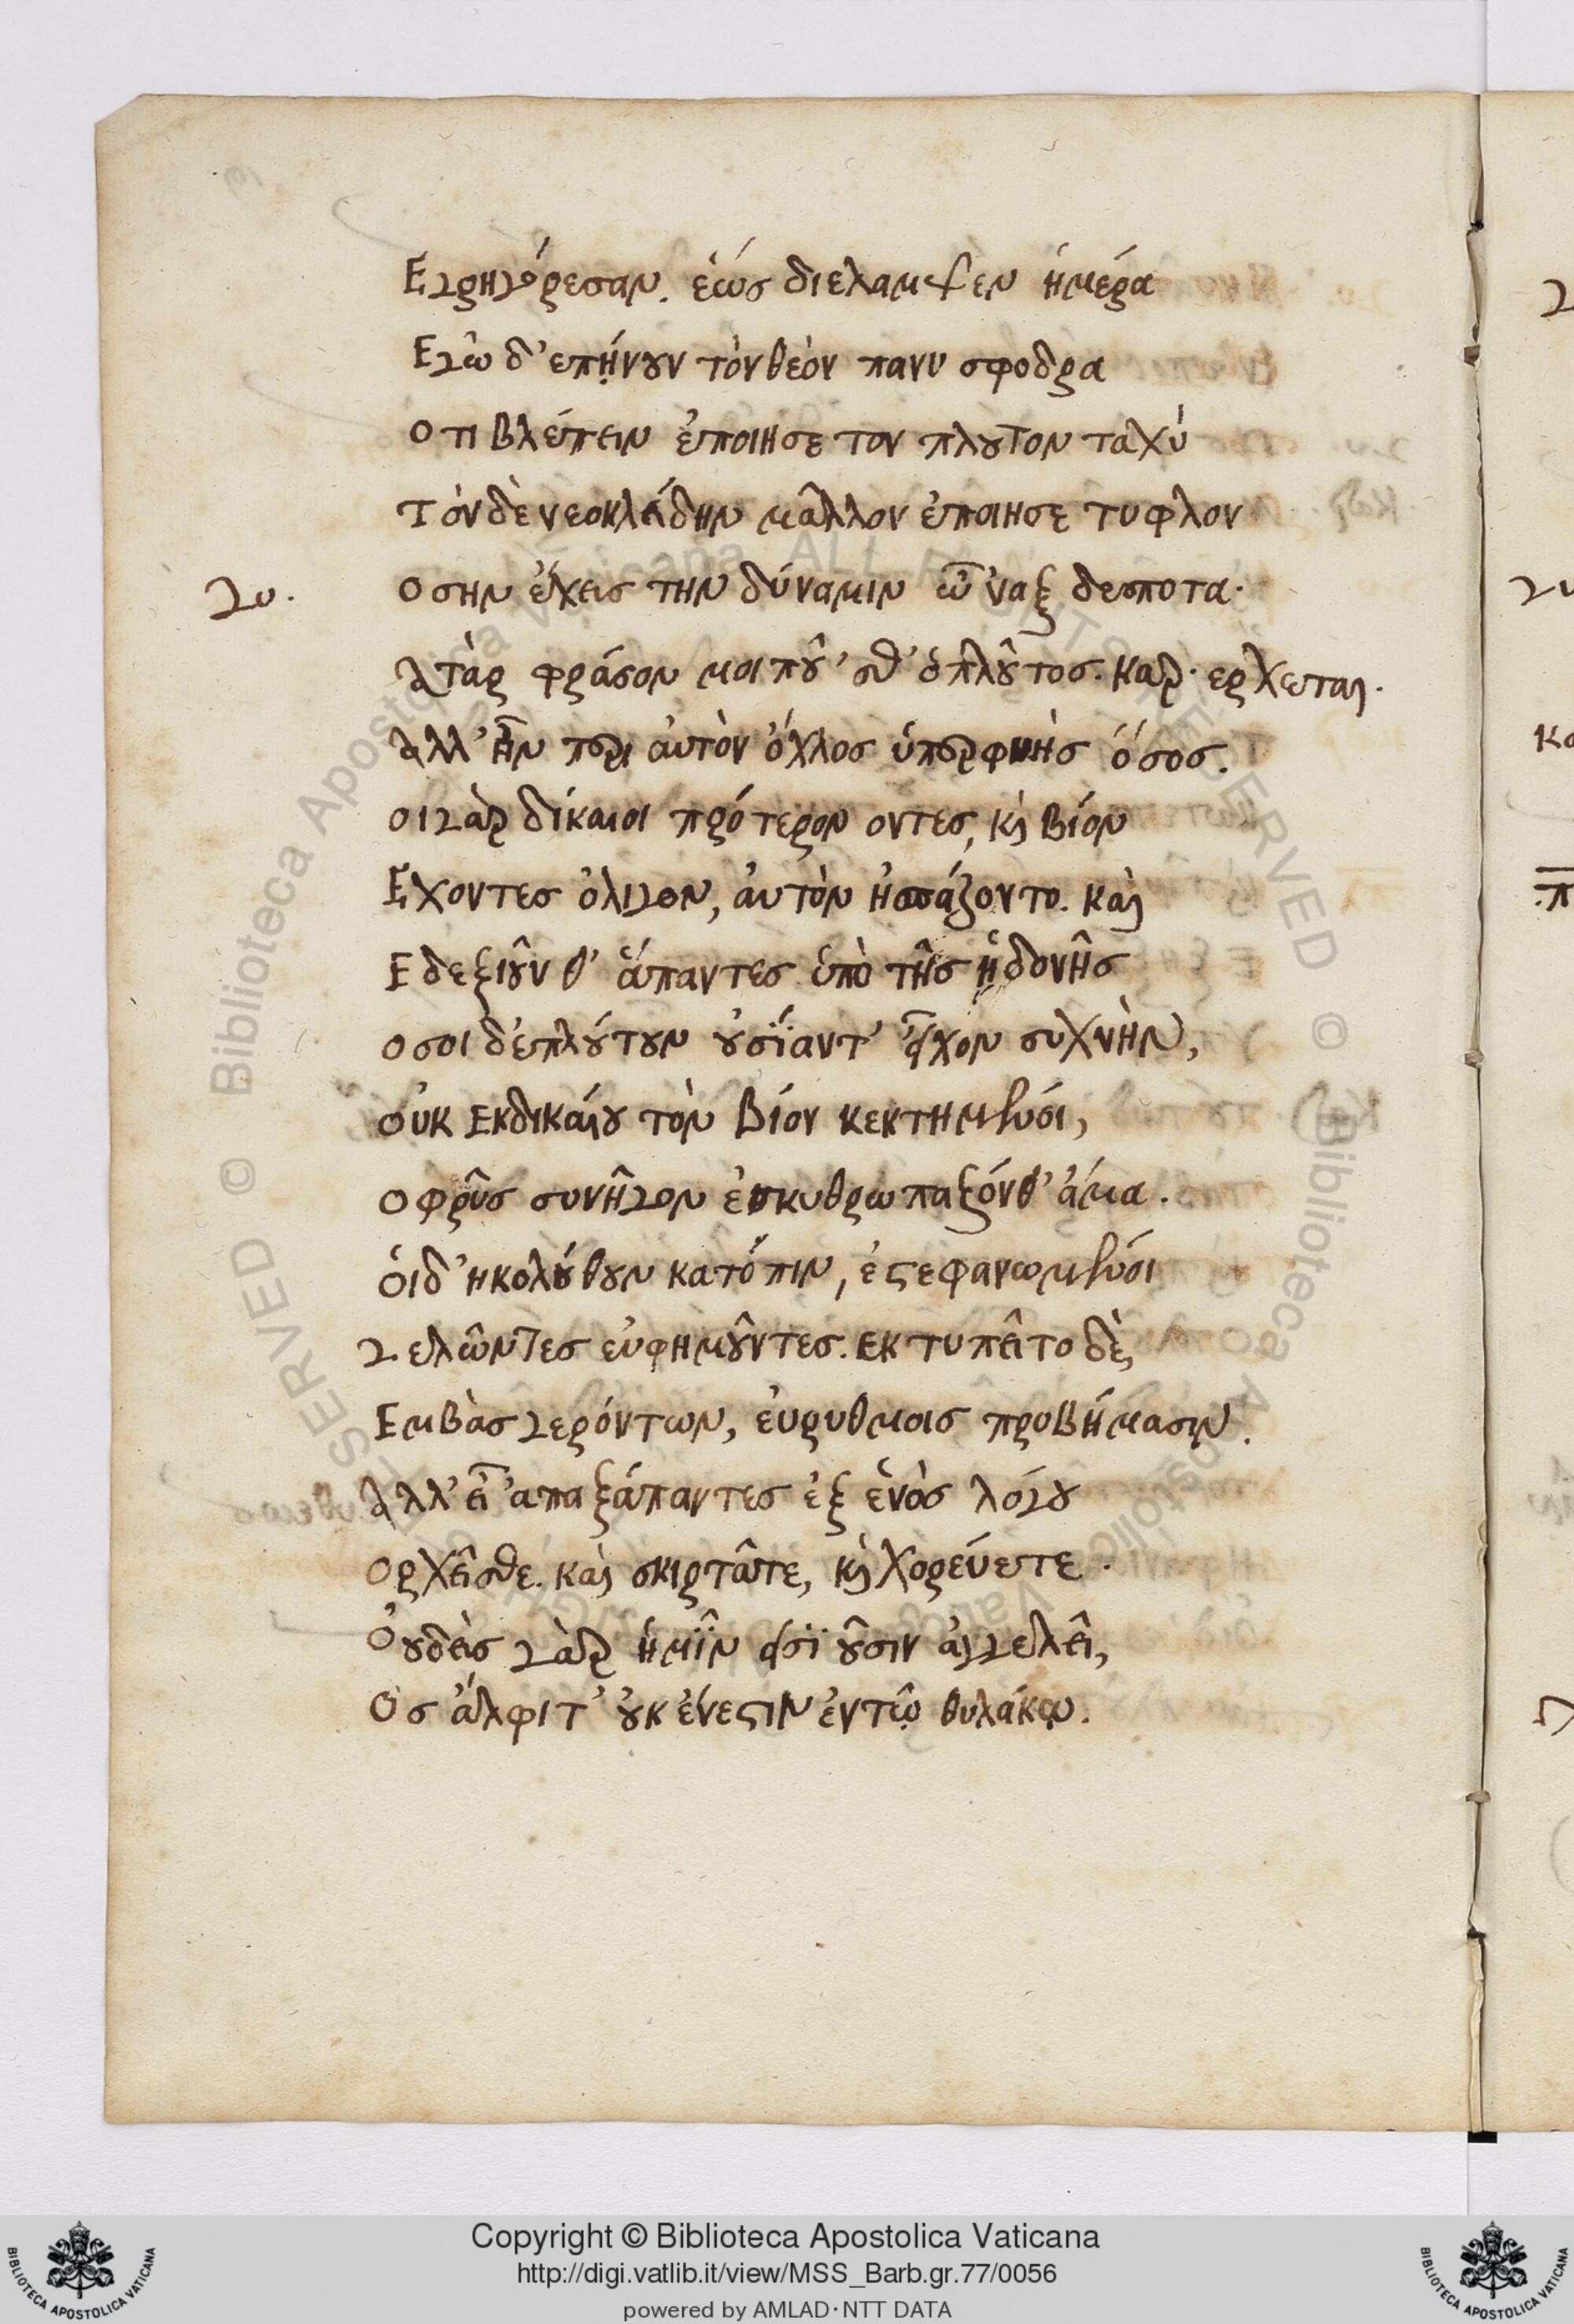 Εγρηγόρεσαν. ἑώς διελαμψεν ἡμέρα
Εγὼ δ' επῄνουν τὸν θεὸν πανυ σφοδρα
Οτι βλέπειν ἐποιησε τον πλουτον ταχύ
Τὸν δὲ νεοκλείδην μᾶλλον ἐποιησε τυφλον
γυ. Οσην ἔχεις την δύναμιν ὦ ναξ δεσποτα.
Ατὰρ φράσον μοι ποῦ 'σθ' ὁ πλοῦτος. καρ. ερχεται.
Αλλ' ἦν περι ἀυτὸν ὄχλος ὑπερφυὴς ὅσος.
οι γὰρ δίκαιοι πρότερον οντες, κὶ βίον
Εχοντες ὀλιγον, ἀυτὸν ἠσπάζοντο. καὶ
Εδεξιοῦνθ' ἅπαντες ὑπὸ τῆς ἡδονῆς
οσοι δ' ἐπλούτουν οὐσΐαντ' εἶχον συχνὴν,
οὐκ εκ δικαίου τὸν βίον κεκτημένοι,
οφρῦς συνῆγον ἐσκυθρωπαξόνθ' ἅμα.
ὁι δ' ηκολούθουν κατόπιν, ἐστεφανωμένοι
γελῶντες εὐφημοῦντες. εκτυπεῖτο δὲ,
Εμβὰς γερόντων, ἐυρυθμοις προβήμασιν.
Αλλ' εἶ 'απαξάπαντες ἐξ ἑνὸς λόγου
ορχεῖσθε. καὶ σκιρτᾶτε, κὶ χορέυετε.
Ὀυδεὶς γὰρ ἡμῖν εισϊοῦσιν ἀγγελεῖ,
Ὡς ἄλφιτ' ὀυκ ἔνεστιν ἐν τῷ θυλάκῳ.
Copyright © Biblioteca Apostolica Vaticana
http://digi.vatlib.it/view/MSS_Barb.gr.77/0056
powered by AMLAD·NTT DATA
BIBLIOTECA APOSTOLICA VATICANA
BIBLIOTECA APOSTOLICA VATICANA